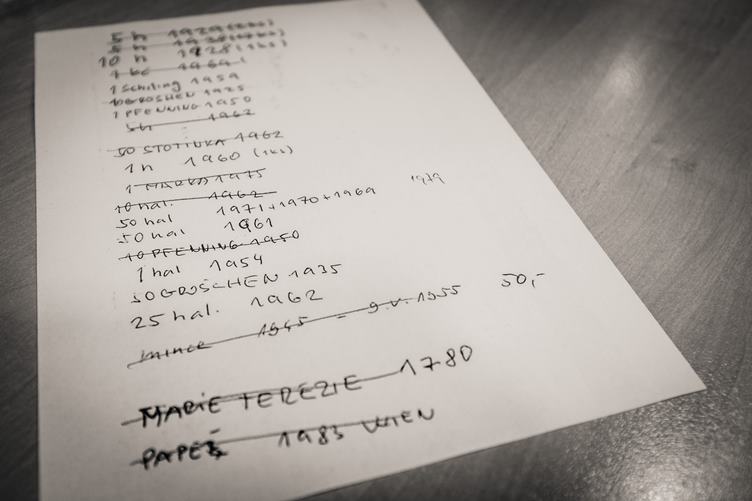 5 h 1929 (2ks)
5 h 1938 (7ks)
10 h 1928 (1ks)
1 kč 1969
1 Schilling 1959
10 GROSHEN 1925
1 PFENNING 1950
5h 1962
50 STOTINKA 1962
1 h 1960 (1ks)
1 MARKA 1975
10 hal. 1962
50 hal 1971+1970+1969 1979
50 hal 1961
10 PFENNING 1950
1 hal 1954
50 GROSCHEN 1935
25 hal. 1962
mince 1945 - 9.V. 1955 50,-
MARIE TEREZIE 1780
PAPEŽ 1983 WIEN